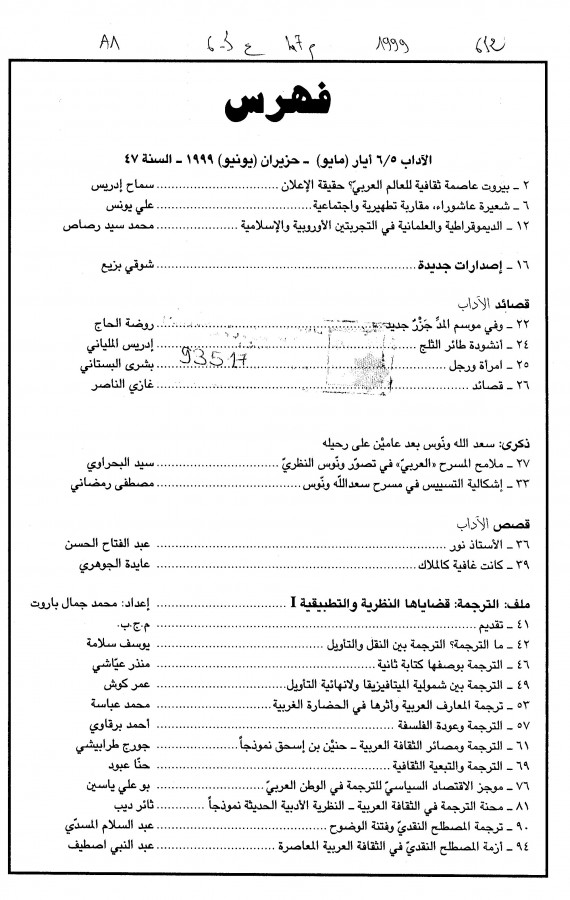 م ٤٧ ع 5-6 1999
فهرس
الآداب ٦/٥ أيار (مايو) - حزيران (يونيو) ١٩٩٩ - السنة ٤٧
٢ - بيروت عاصمة ثقافية للعالم العربيّ؟ حقيقة الإعلان ........ سماح إدريس
٦ - شعيرة عاشوراء، مقاربة تطهيرية واجتماعية ........ علي يونس
١٢ - الديموقراطية والعلمانية في التجربتين الأوروبية والإسلامية ........ محمد سيد رصاص
١٦ - إصدارات جديدة ........ شوقي بزيع
قصائد الآداب
٢٢ - وفي موسم المدِّ جَزْرٌ جديد ........ روضة الحاج
٢٤ - أنشودة طائر الثلج ........ إدريس الملياني
٢٥ - امرأة ورجل ........ بشرى البستاني
93517
٢٦ - قصائد ........ غازي الناصر
ذكرى: سعد الله ونّوس بعد عاميْن على رحيله
٢٧ - ملامح المسرح «العربيّ» في تصوّر ونّوس النظريّ ........ سيد البحراوي
٣٣ - إشكالية التسييس في مسرح سعدالله ونّوس ........ مصطفى رمضاني
قصص الآداب
٣٦ - الأستاذ نور ........ عبد الفتاح الحسن
٣٩ - كانت غافية كالملاك ........ عايدة الجوهري
ملف: الترجمة: قضاياها النظرية والتطبيقية I ........ إعداد: محمد جمال باروت
٤١ - تقديم ........ م.ج.ب.
٤٢ - ما الترجمة؟ الترجمة بين النقل والتأويل ........ يوسف سلامة
٤٦ - الترجمة بوصفها كتابة ثانية ........ منذر عيّاشي
٤٩ - الترجمة بين شمولية الميتافيزيقا ولانهائية التأويل ........ عمر كوش
٥٣ - ترجمة المعارف العربية وأثرها في الحضارة الغربية ........ محمد عباسة
٥٧ - الترجمة وعودة الفلسفة ........ أحمد برقاوي
٦١ - الترجمة ومصائر الثقافة العربية - حنيْن بن إسحق نموذجاً ........ جورج طرابيشي
٦٩ - الترجمة والتبعية الثقافية ........ حنّا عبود
٧٦ - موجز الاقتصاد السياسيّ للترجمة في الوطن العربيّ ........ بو علي ياسين
٨١ - محنة الترجمة في الثقافة العربية - النظرية الأدبية الحديثة نموذجاً ........ ثائر ديب
٩٠ - ترجمة المصطلح النقديّ وفتنة الوضوح ........ عبد السلام المسدّي
٩٤ - أزمة المصطلح النقديّ في الثقافة العربية المعاصرة ........ عبد النبي اصطيف